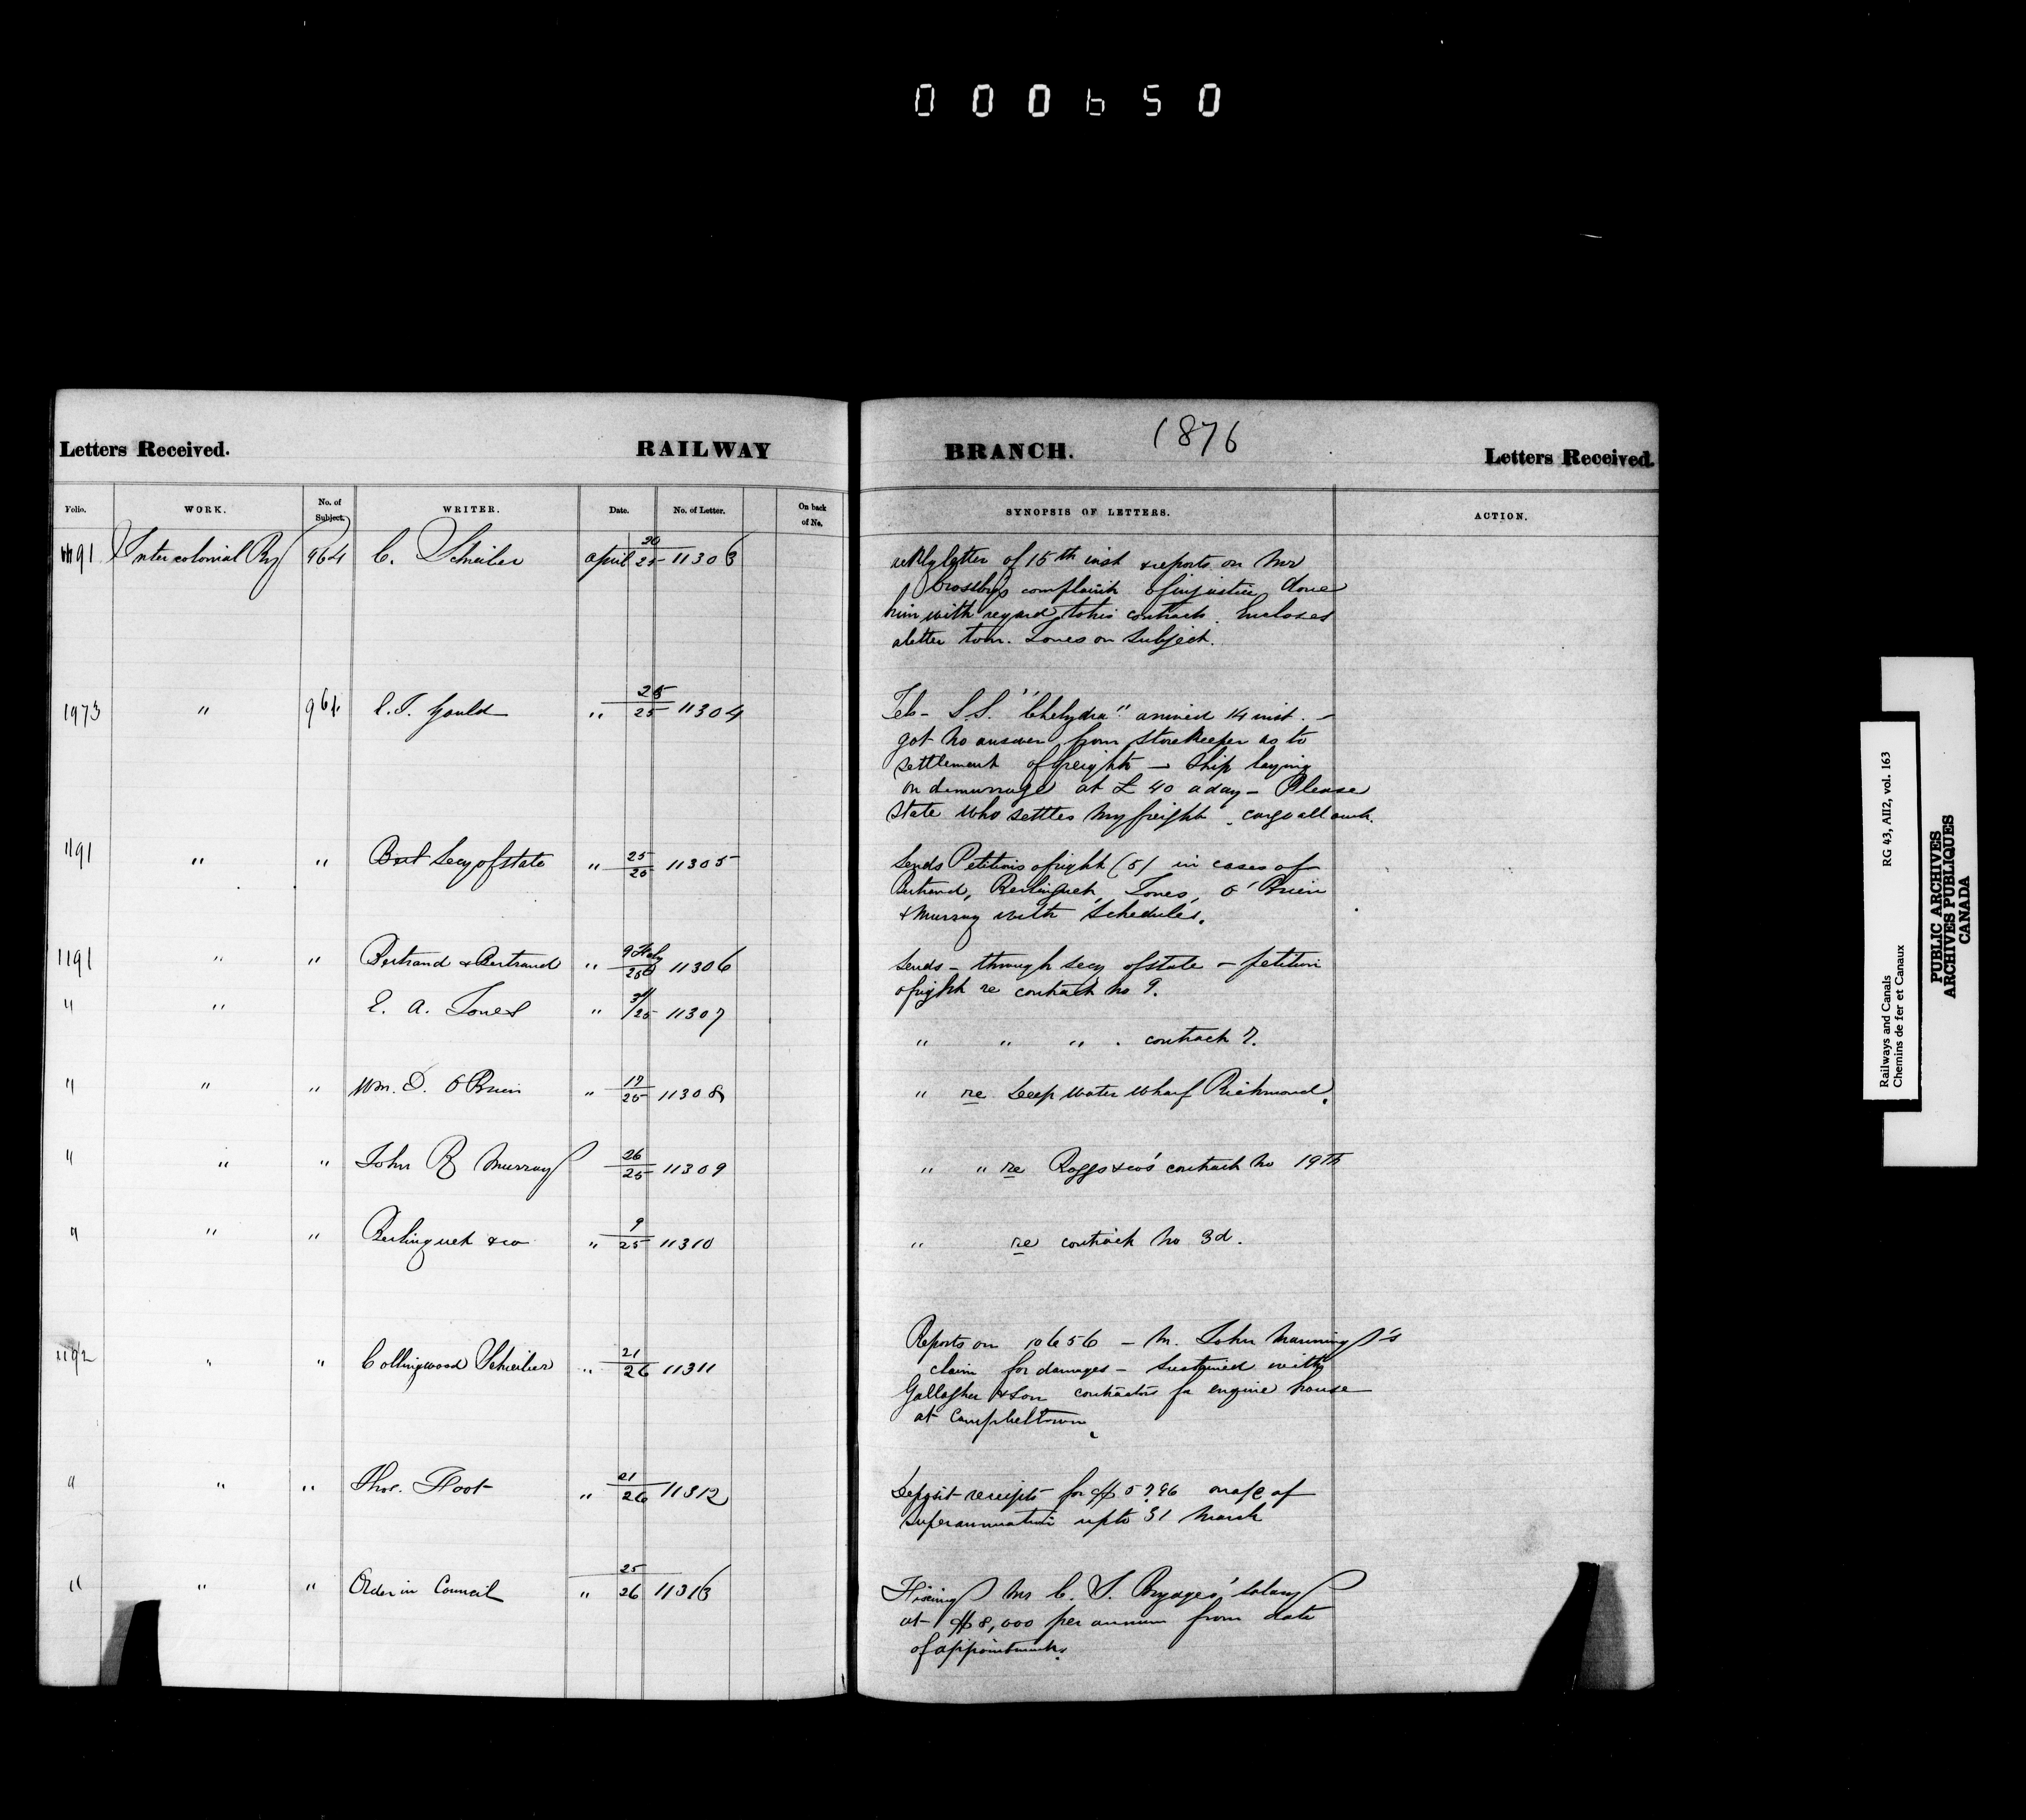 000650
Letters Received. RAILWAY BRANCH. 1876 Letters Received.
Folio. WORK. No. of Subject. WRITER. Date. No. of Letter. On back of No. SYNOPSIS OF LETTERS. ACTION.
1191 Intercolonial Ry 964 C. Schreiber april 20/25 11303 letter of 15th inst & reports on Mr
Crossby's complaint of injustice done
him with regard to his contract. Encloses
a letter from Jones on subject.
1973 " 964 E.T. Gould " 25/25 11304 Tel- S.S. "Chelydra" arrived 14 inst. -
got no answer from Storekeeper as to
settlement of freight - Ship laying
on demurrage at £40 a day - Please
state who settles my freight. cargo all out.
1191 " " Secy of state " 25/25 11305 Sends Petitions of right (5) in cases of
Bertrand, Berlinguet, Jones, O'Brien
& Murray with Schedules.
1191 " " Bertrand & Bertrand " 9 Feby/25 11306 Sends - through Secy of state - petition
of right re contract no 9.
" " E. A. Jones " /25 11307 " " " . contract 7.
" " " Wm. D. O'Brien " 17/25 11308 " re Deep Water Wharf Richmond.
" " " John R Murray 26/25 11309 " " re Boggs & co's contract no 19th
" " " Berlinguet & co " 9/25 11310 " re contract no 3d.
1192 " " Collingwood Schreiber " 21/26 11311 Reports on 10656 - Mr. John Manning's
claim for damages - Sustained with
Gallagher & Son contractors for engine house
at Campbeltown.
" " " Thos. Foot " 21/26 11312 Deposit receipts for $ 57.96 on a/c of
superannuation up to 31 March
" " " Order in Council " 25/26 11313 Fixing Mr C. J. Brydges' salary
at $8,000 per annum from date
of appointment.
Railways and Canals RG 43, AII2, vol. 163
Chemins de fer et Canaux
PUBLIC ARCHIVES
ARCHIVES PUBLIQUES
CANADA